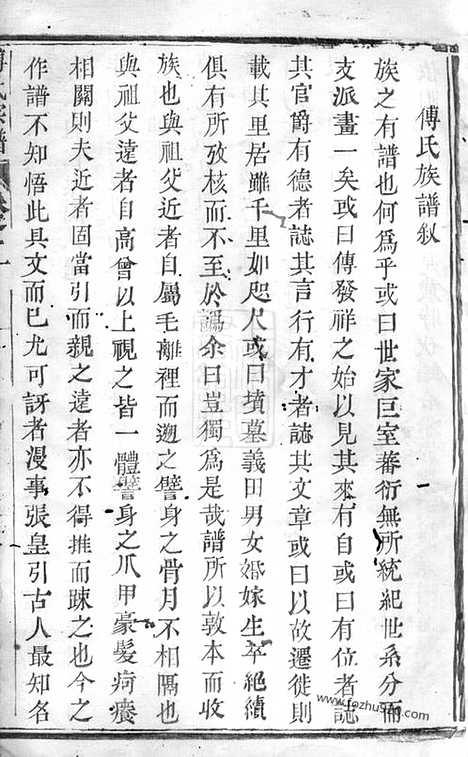 傅氏族譜叙
族之有譜也何爲乎或曰世家巨室蕃衍無所統紀世系分而
支派畫一矣或曰傳發祥之始以見其來有自或曰有位者誌
其官爵有德者誌其言行有才者誌其文章或曰以故遷徙則
載其里居雖千里如咫尺或曰墳墓義田男女婚嫁生卒絶續
俱有所攷核而不至於譌余曰豈獨爲是哉譜所以敦本而收
族也與祖父近者自屬毛離裡而邇之譬身之骨月不相隔也
與祖父遠者自高曾以上視之皆一體譬身之爪甲豪髮疴癢
相關則夫近者固當引而親之遠者亦不得推而踈之也今之
作譜不知悟此具文而已尤可訝者漫事張皇引古人最知名
氏宗譜
www.fozhu920.com